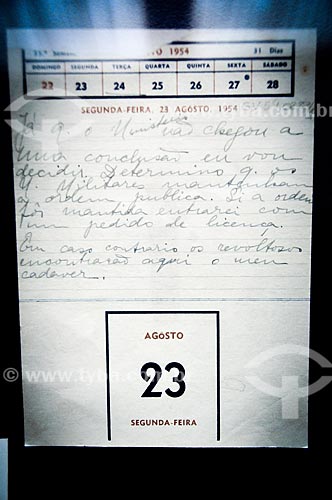 35.ª Semana AGOSTO 1954 31 Dias
DOMINGO SEGUNDA TERÇA QUARTA QUINTA SEXTA SÁBADO
22 23 24 25 26 27 28
SEGUNDA-FEIRA, 23 AGOSTO, 1954
Já q. o Ministério não chegou a
uma conclusão eu vou
decidir. Determino q. os
M. Militares mantenham
a ordem publica. Si a ordem
fôr mantida entrarei com
um pedido de licença.
Em caso contrario os revoltosos
encontrarão aqui o meu
cadaver.
AGOSTO
23
SEGUNDA-FEIRA
© www.tyba.com.br